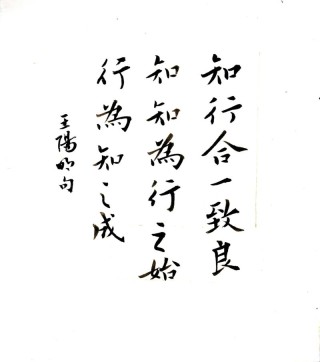 知行合一致良
知知為行之始
行為知之成
王陽明句